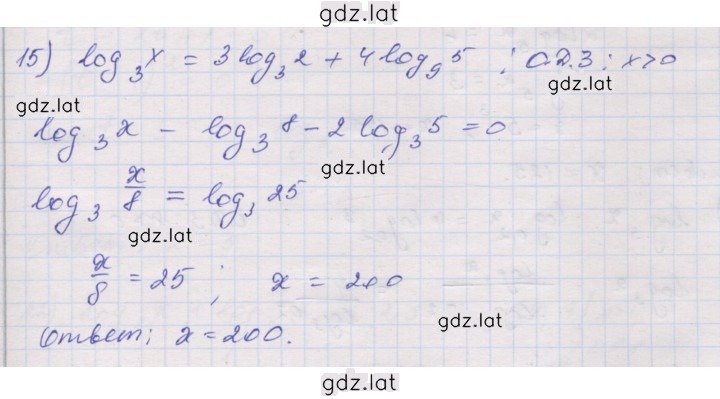 gdz.lat
15) log₃x = 3log₃2 + 4log₉5 ; О.Д.З: x>0
gdz.lat
gdz.lat
log₃x - log₃8 - 2log₃5 = 0
gdz.lat
log₃ x/8 = log₃25
gdz.lat
x/8 = 25 ; x = 200
gdz.lat
Ответ: x = 200.
gdz.lat